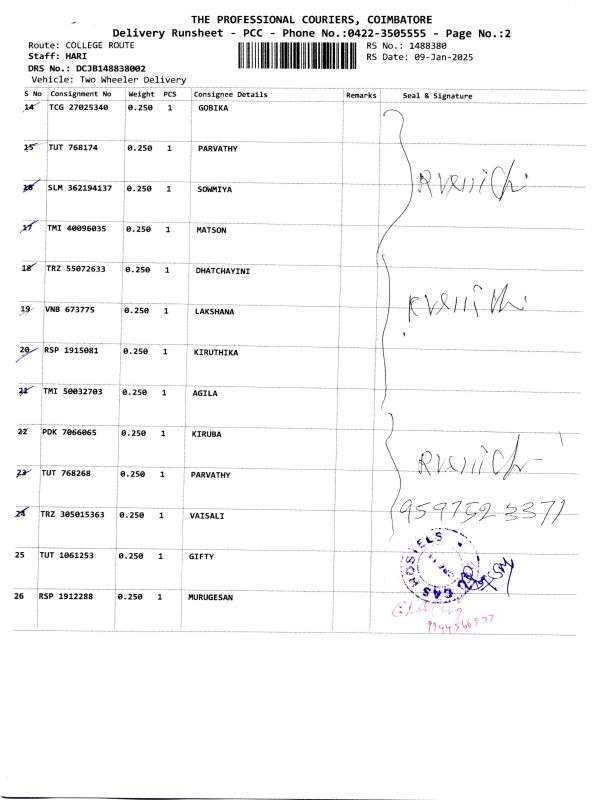 THE PROFESSIONAL COURIERS, COIMBATORE
Delivery Runsheet - PCC - Phone No.:0422-3505555 - Page No.:2
Route: COLLEGE ROUTE RS No.: 1488380
Staff: HARI RS Date: 09-Jan-2025
DRS No.: DCJB148838002
Vehicle: Two Wheeler Delivery
S No Consignment No Weight PCS Consignee Details Remarks Seal & Signature
14 TCG 27025340 0.250 1 GOBIKA
15 TUT 768174 0.250 1 PARVATHY
16 SLM 362194137 0.250 1 SOWMIYA
17 TMI 40096035 0.250 1 MATSON
18 TRZ 55072633 0.250 1 DHATCHAYINI
19 VNB 673775 0.250 1 LAKSHANA
20 RSP 1915081 0.250 1 KIRUTHIKA
21 TMI 50032703 0.250 1 AGILA
22 PDK 7066065 0.250 1 KIRUBA
23 TUT 768268 0.250 1 PARVATHY
24 TRZ 305015363 0.250 1 VAISALI
9597523371
25 TUT 1061253 0.250 1 GIFTY
CAS HOSTELS
26 RSP 1912288 0.250 1 MURUGESAN
9944566977